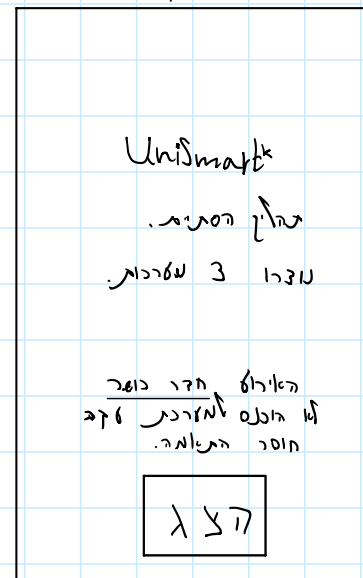 UniSmart*
תהליך הסתיים.
נוצרו 3 מערכות.
האירוע חדר כושר
לא הוכנס למערכת עקב
חוסר התאמה.
הצג